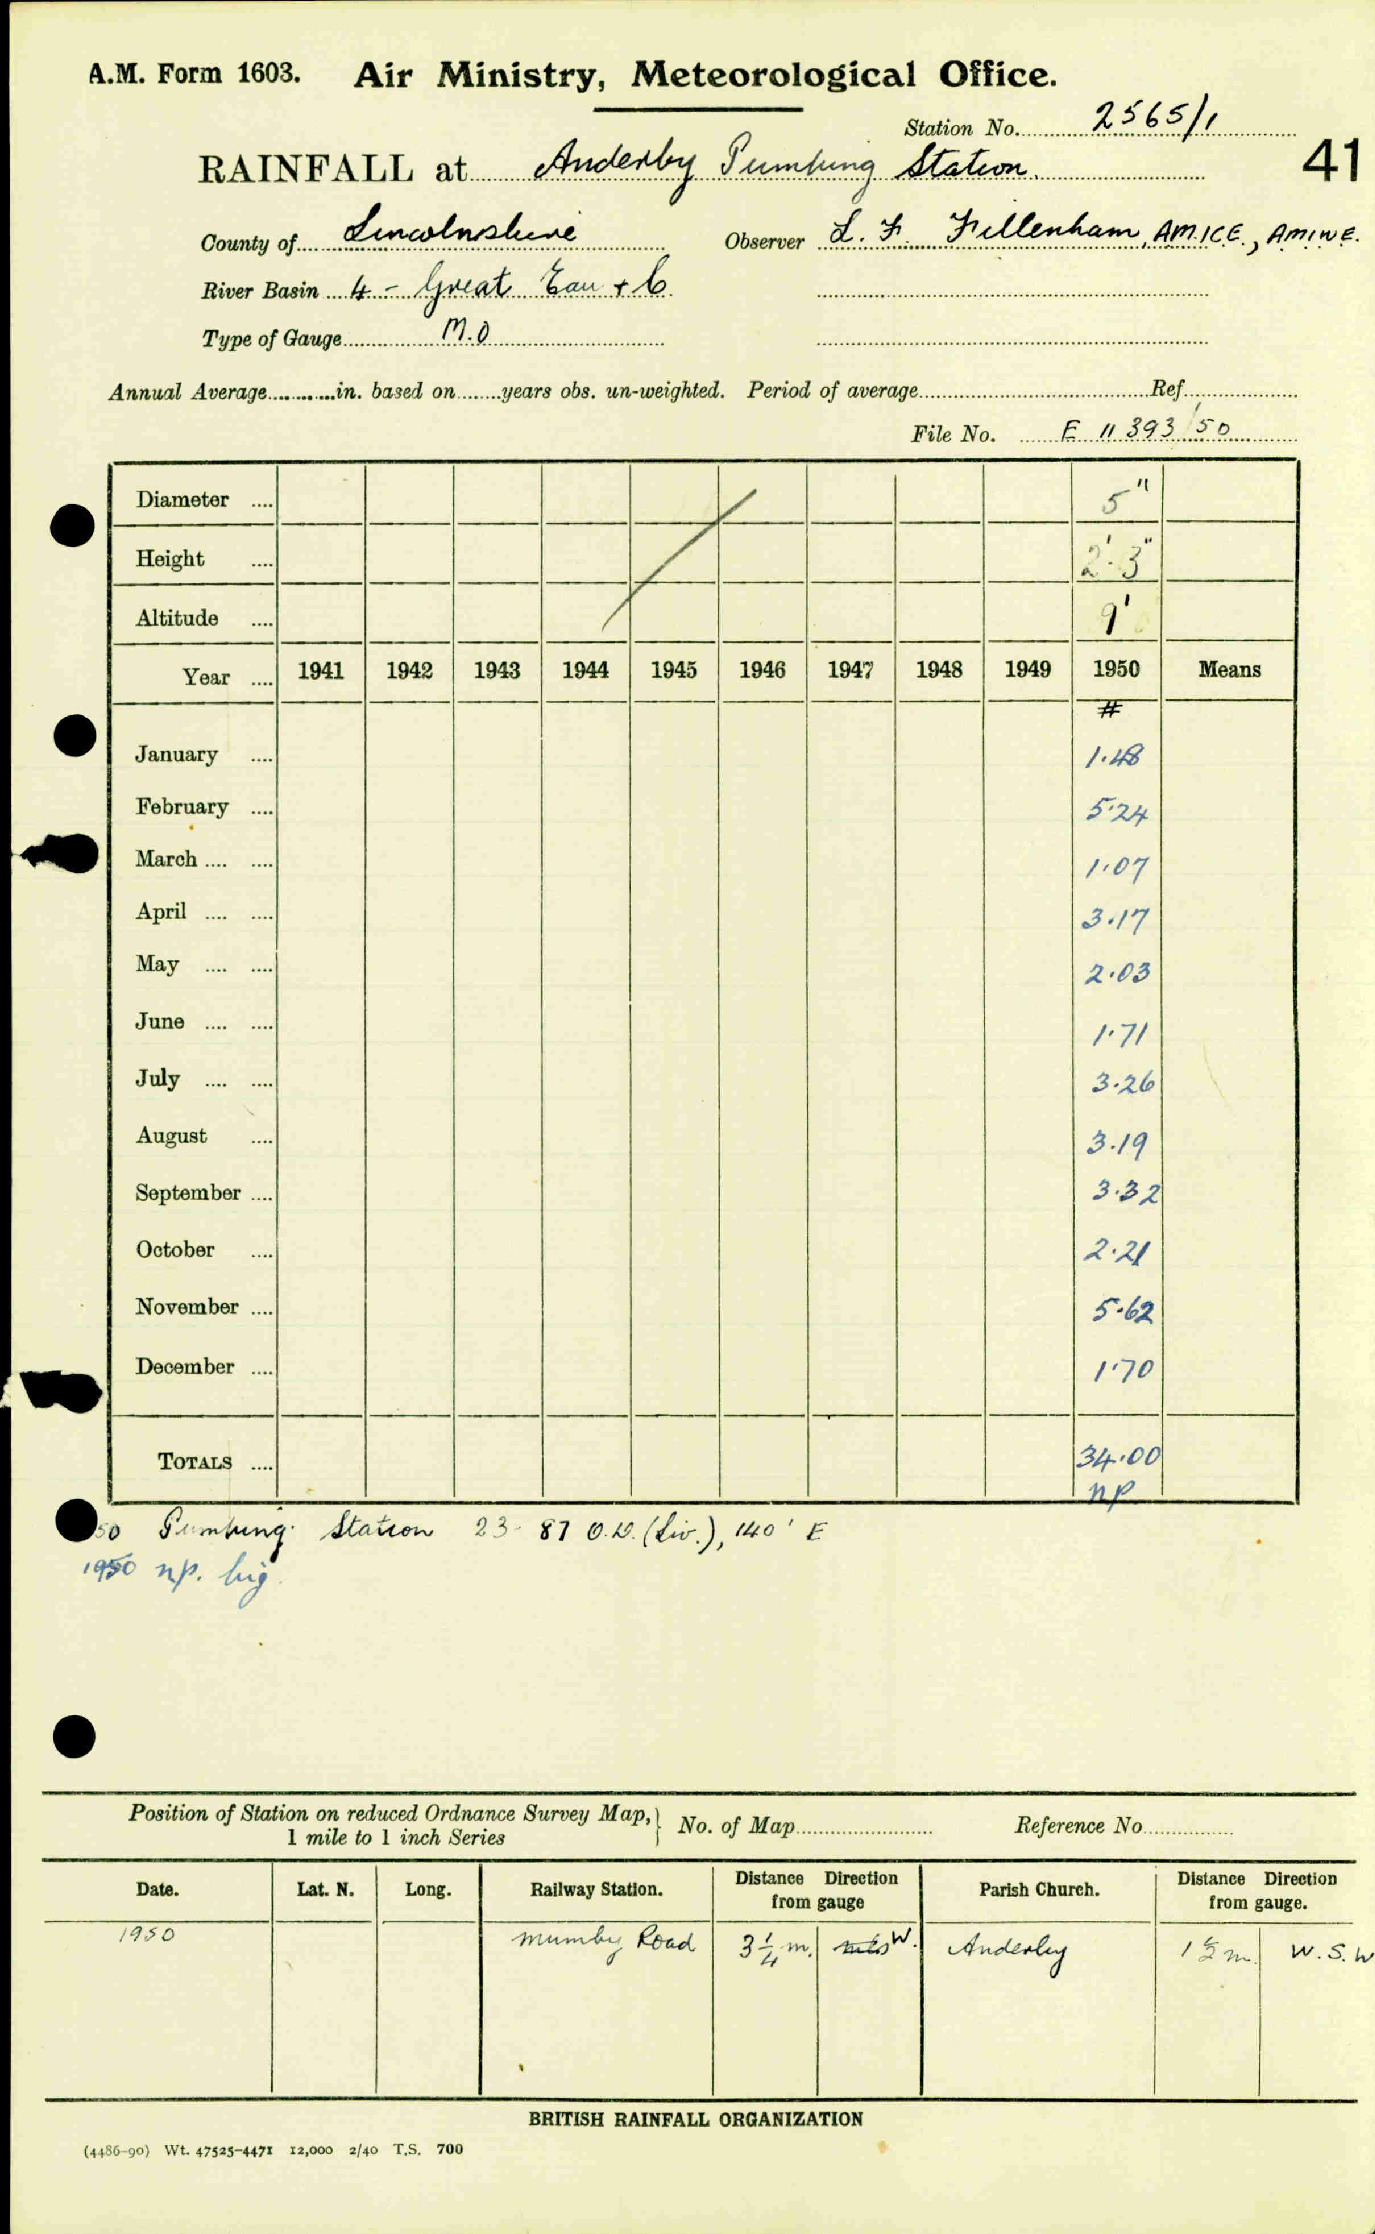 A.M. Form 1603. Air Ministry, Meteorological Office.
Station No. 2565/1
RAINFALL at Anderby Pumping Station. 41
County of Lincolnshire Observer L. F. Fillenham, A.M.I.C.E., A.M.I.W.E.
River Basin 4 - Great Eau + C
Type of Gauge M.O
Annual Average............in. based on........years obs. un-weighted. Period of average........ Ref........
File No. E 11393/50
Diameter .... 5"
Height .... 2'-3"
Altitude .... 9'
Year .... 1941 1942 1943 1944 1945 1946 1947 1948 1949 1950 Means
#
January .... 1.48
February .... 5.24
March .... .... 1.07
April .... .... 3.17
May .... .... 2.03
June .... .... 1.71
July .... .... 3.26
August .... 3.19
September .... 3.32
October .... 2.21
November .... 5.62
December .... 1.70
TOTALS .... 34.00
np
50 Pumping Station 23.87 O.D. (Liv.), 140' E
1950 np. big
Position of Station on reduced Ordnance Survey Map, 1 mile to 1 inch Series } No. of Map........ Reference No........
Date. Lat. N. Long. Railway Station. Distance Direction from gauge Parish Church. Distance Direction from gauge.
1950 Mumby Road 3 1/4 m. W. Anderby 1 1/2 m. W.S.W
BRITISH RAINFALL ORGANIZATION
(4486-90) Wt. 47525-4471 12,000 2/40 T.S. 700